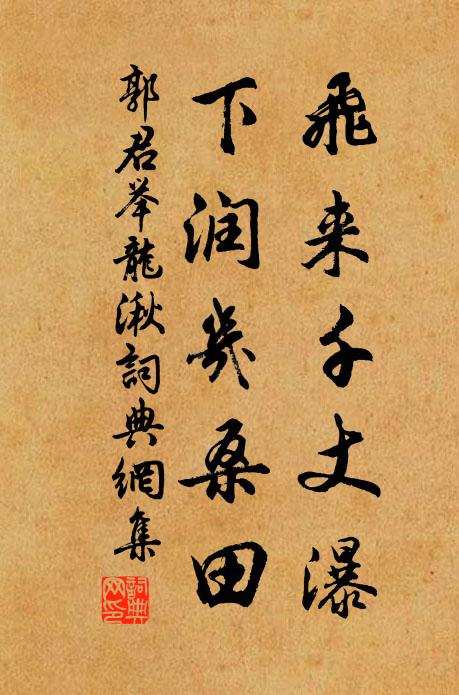 飛来千丈瀑
下润幾桑田
郭君举龍湫詞典網集
詞典网印